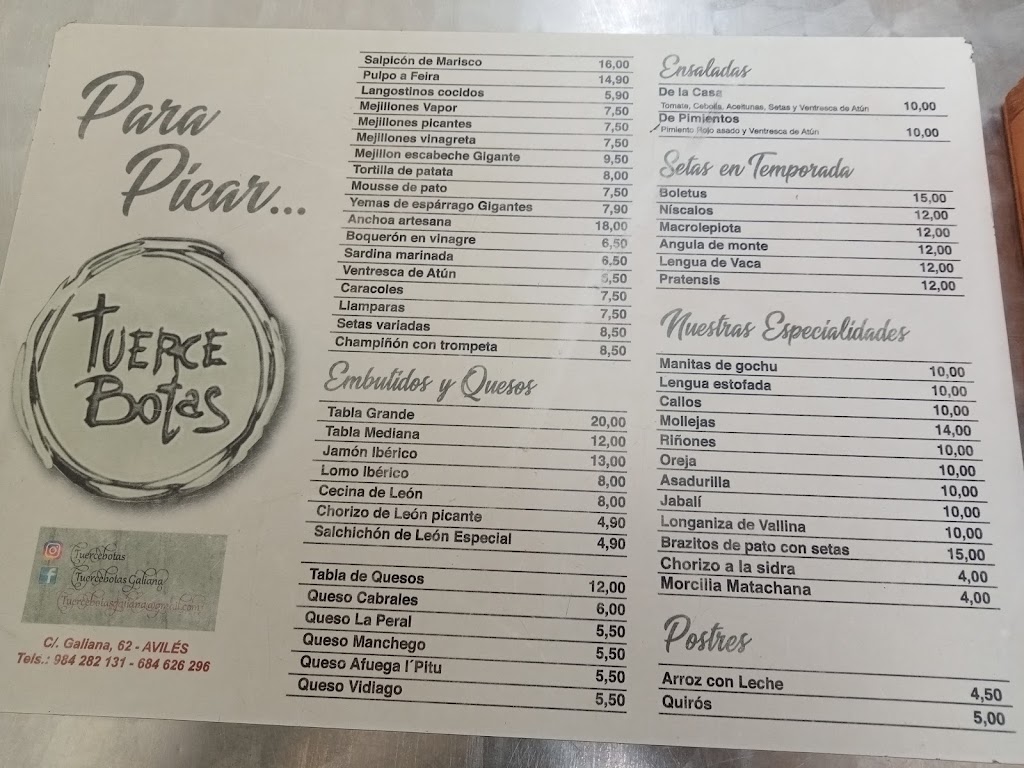 Para
Picar...
TUERCE
Botas
Tuercebotas
Tuercebotas Galiana
C/. Galiana, 62 - AVILÉS
Tels.: 984 282 131 - 684 626 296
Salpicón de Marisco 16,00
Pulpo a Feira 14,90
Langostinos cocidos 5,90
Mejillones Vapor 7,50
Mejillones picantes 7,50
Mejillones vinagreta 7,50
Mejillon escabeche Gigante 9,50
Tortilla de patata 8,00
Mousse de pato 7,50
Yemas de espárrago Gigantes 7,90
Anchoa artesana 18,00
Boquerón en vinagre 6,50
Sardina marinada 6,50
Ventresca de Atún
Caracoles 7,50
Llamparas 7,50
Setas variadas 8,50
Champiñón con trompeta 8,50
Embutidos y Quesos
Tabla Grande 20,00
Tabla Mediana 12,00
Jamón Ibérico 13,00
Lomo Ibérico 8,00
Cecina de León 8,00
Chorizo de León picante 4,90
Salchichón de León Especial 4,90
Tabla de Quesos 12,00
Queso Cabrales 6,00
Queso La Peral 5,50
Queso Manchego 5,50
Queso Afuega l´Pitu 5,50
Queso Vidiago 5,50
Ensaladas
De la Casa
Tomate, Cebolla, Aceitunas, Setas y Ventresca de Atún 10,00
De Pimientos
Pimiento Rojo asado y Ventresca de Atún 10,00
Setas en Temporada
Boletus 15,00
Níscalos 12,00
Macrolepiota 12,00
Angula de monte 12,00
Lengua de Vaca 12,00
Pratensis 12,00
Nuestras Especialidades
Manitas de gochu 10,00
Lengua estofada 10,00
Callos 10,00
Mollejas 14,00
Riñones 10,00
Oreja 10,00
Asadurilla 10,00
Jabalí 10,00
Longaniza de Vallina 10,00
Brazitos de pato con setas 15,00
Chorizo a la sidra 4,00
Morcilla Matachana 4,00
Postres
Arroz con Leche 4,50
Quirós 5,00